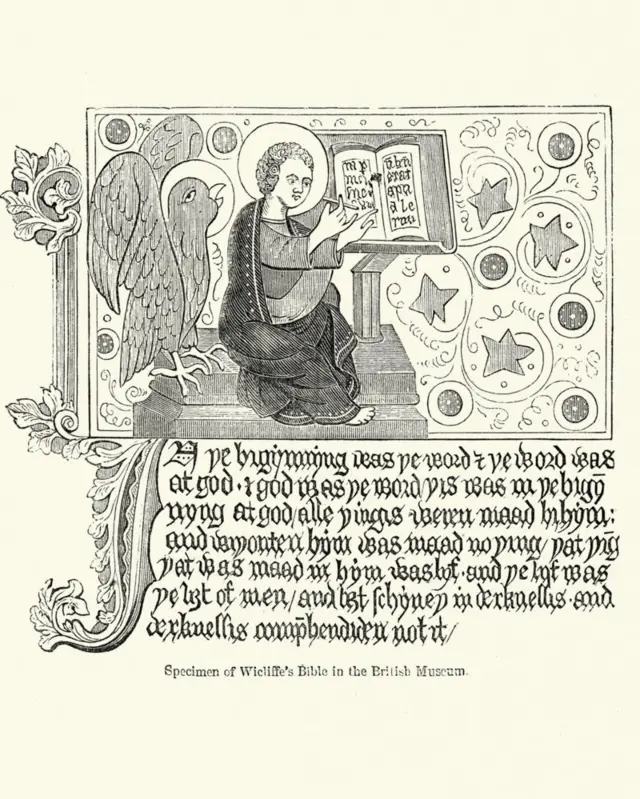 IN ye bigynnyng was ye word ⁊ ye word was
at god · ⁊ god was ye word / yis was in ye bigȳ
nyng at god / alle yingis weren maad bi hym:
and wiyouten hym was maad no ying / yat yīg
yat was maad in hym was lyf · and ye lyf was
ye liȝt of men / and liȝt schyney in derknessis · and
derknessis comp̄hendiden not it /
Specimen of Wicliffe's Bible in the British Museum.